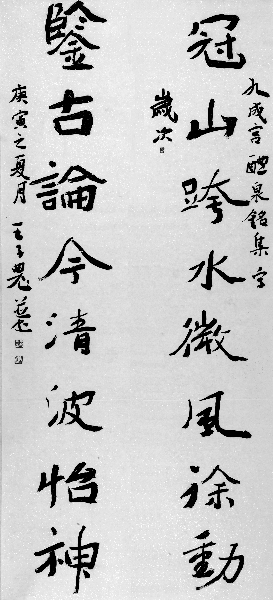 九成宮醴泉銘集字
冠山跨水微風徐動
歲次
鑒古論今清波怡神
庚寅之夏月